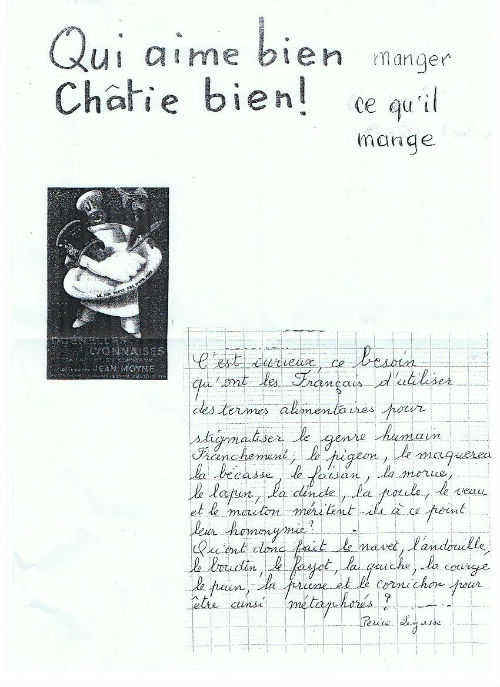 Qui aime bien manger
Châtie bien! ce qu'il
mange
LYONNAISES
JEAN MOYNE
C'est curieux, ce besoin
qu'ont les Français d'utiliser
des termes alimentaires pour
stigmatiser le genre humain
Franchement, le pigeon, le maquereau
la bécasse, le faisan, la morue,
le lapin, la dinde, la poule, le veau
et le mouton méritent ils à ce point
leur homonymie?
Qu'ont donc fait le navet, l'andouille,
le boudin, le fayot, la quiche, la courge
le pain, la prune et le cornichon pour
être ainsi métaphorés?